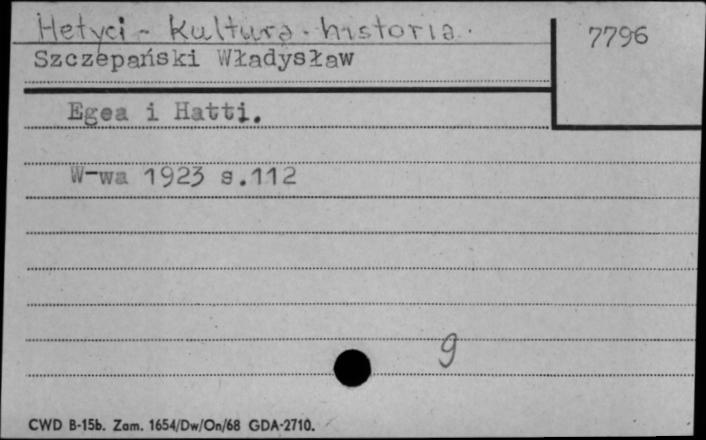 Hetyci - Kultura - historia.
7796
Szczepański Władysław
Egea i Hatti.
W-wa 1923 s.112
9
CWD B-15b. Zam. 1654/Dw/On/68 GDA-2710.